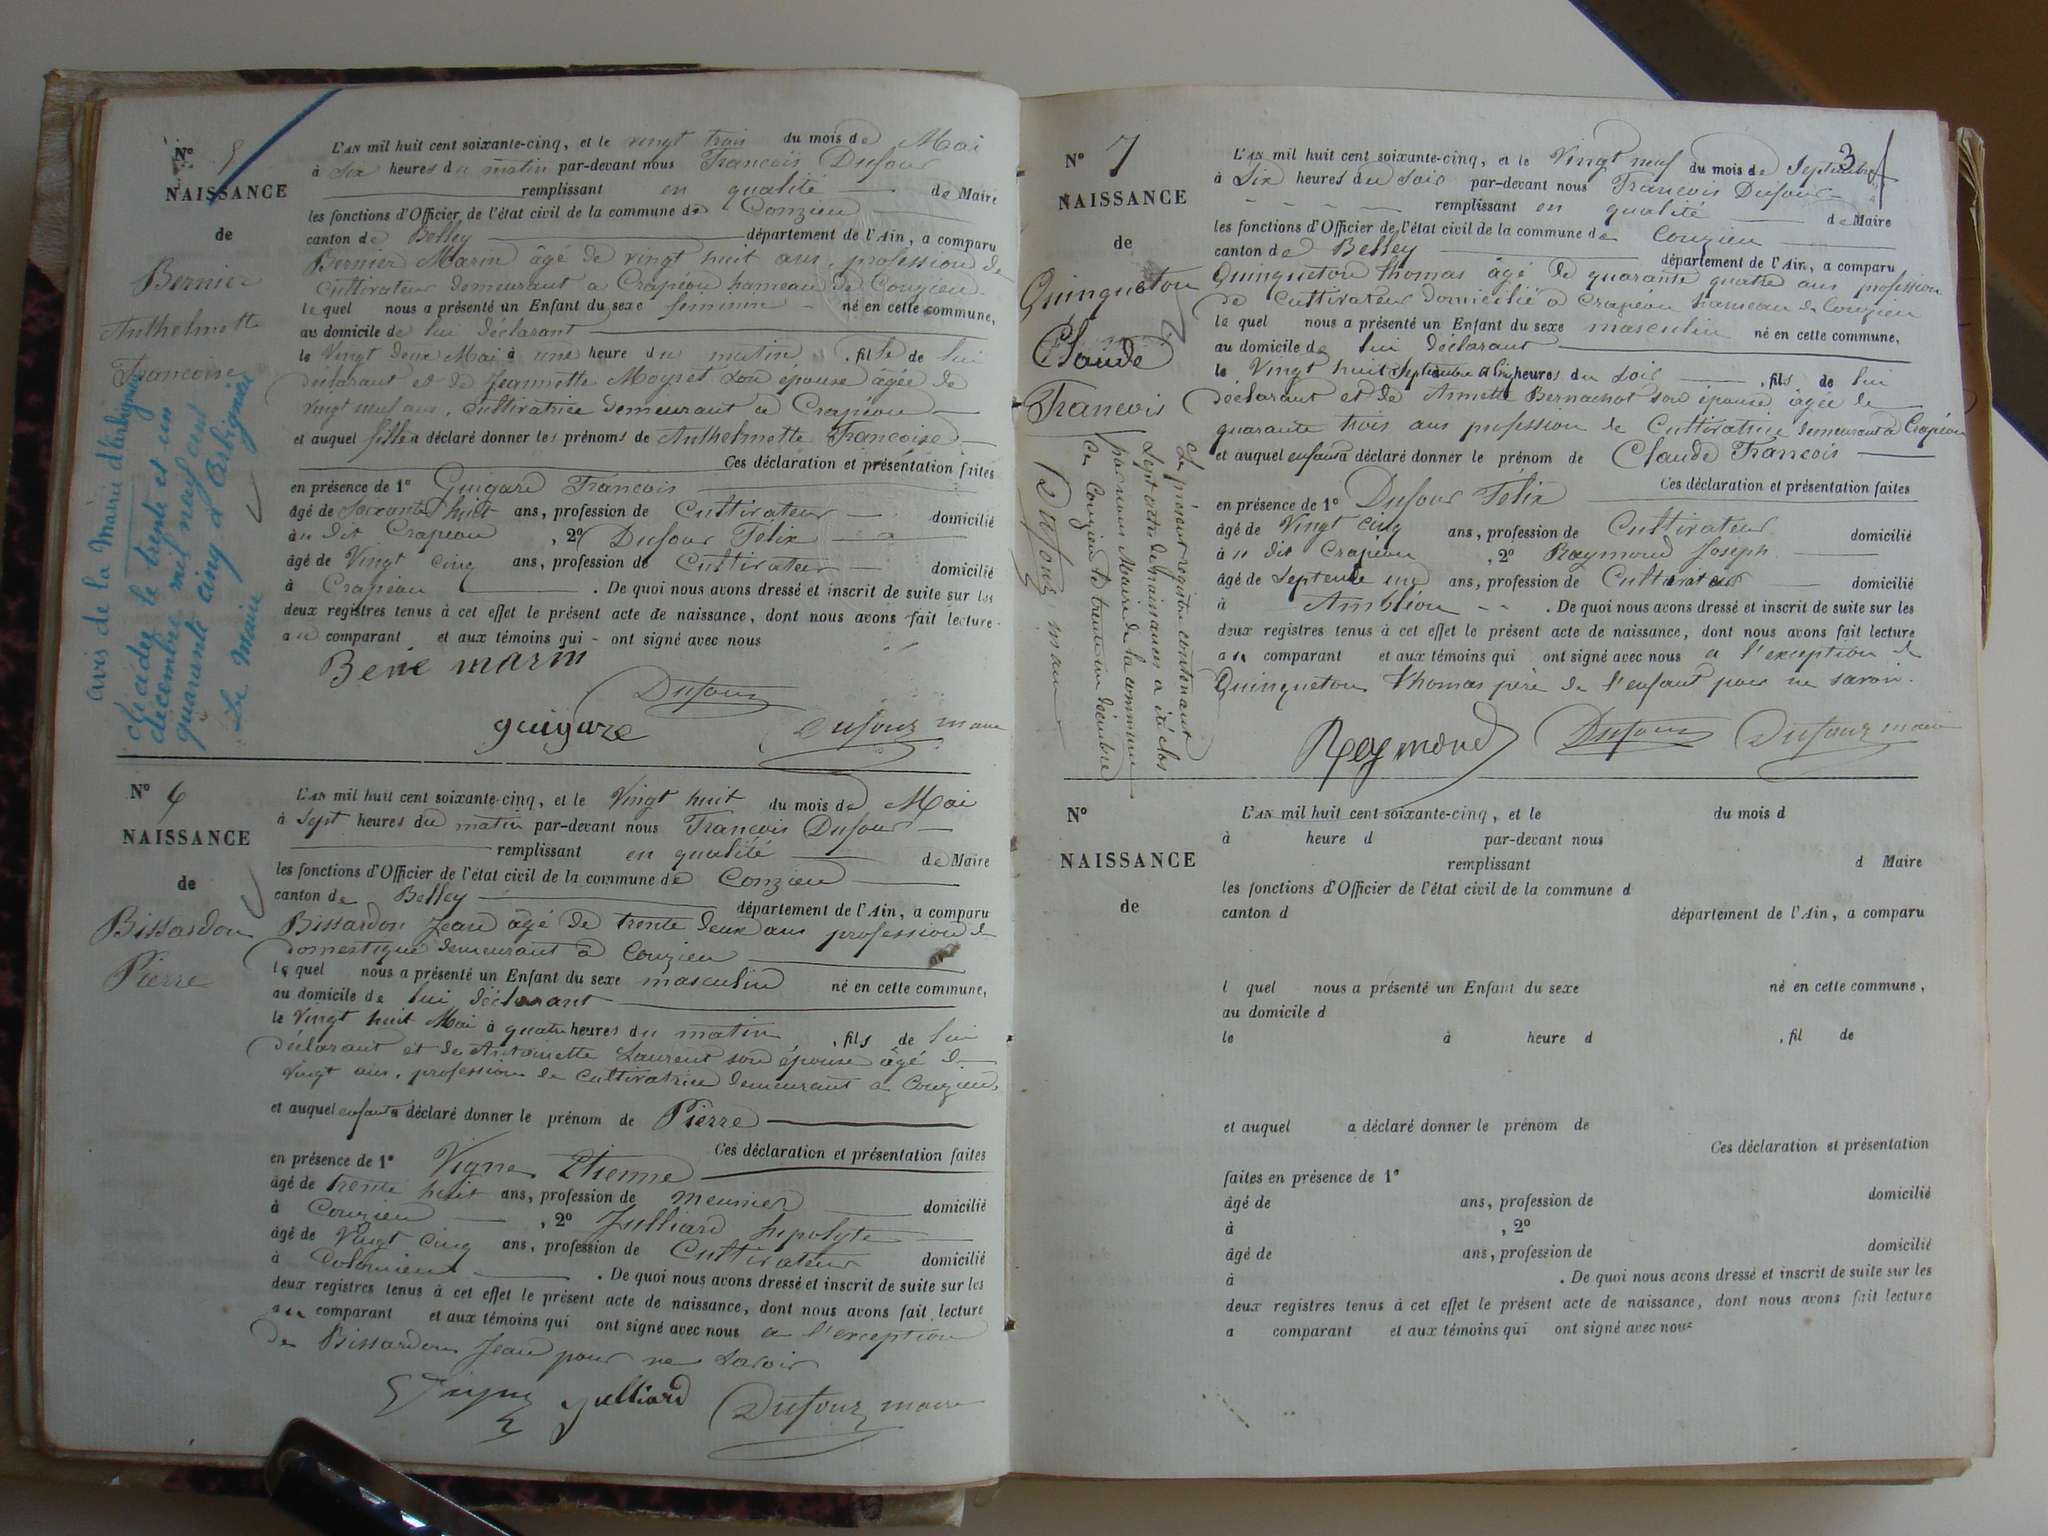 N° 5
NAISSANCE
de
Bernier
Anthelmette
Francoise
avis de la Mairie d'Arbignieu
décédée le trente et un
décembre mil neuf cent
quarante cinq à Arbignieu
Le Maire
L'AN mil huit cent soixante-cinq, et le vingt trois du mois de Mai
à six heures du matin par-devant nous Francois Dufour
remplissant en qualité de Maire
les fonctions d'Officier de l'état civil de la commune de Conzieu
canton de Belley département de l'Ain, a comparu
Bernier Marin âgé de vingt huit ans, profession de
cultivateur demeurant a Crapéou hameau de Conzieu
lequel nous a présenté un Enfant du sexe feminin né en cette commune,
au domicile de lui déclarant
le Vingt deux Mai à une heure du matin, fille de lui
déclarant et de Jeannette Moyret son épouse âgée de
vingt neuf ans, cultivatrice demeurant a Crapéou
et auquel fille a déclaré donner les prénoms de Anthelmette Francoise
Ces déclaration et présentation faites
en présence de 1° Guigard Francois
âgé de soixante huit ans, profession de Cultivateur domicilié
à u dit Crapeou, 2° Dufour Félix
âgé de Vingt cinq ans, profession de Cultivateur domicilié
à Crapéou. De quoi nous avons dressé et inscrit de suite sur les
deux registres tenus à cet effet le présent acte de naissance, dont nous avons fait lecture
au comparant et aux témoins qui ont signé avec nous
Berne marin
Dufour
guigare Dufour maire
N° 6
NAISSANCE
de
Bissardon
Pierre
L'AN mil huit cent soixante-cinq, et le Vingt huit du mois de Mai
à sept heures du matin par-devant nous Francois Dufour
remplissant en qualité de Maire
les fonctions d'Officier de l'état civil de la commune de Conzieu
canton de Belley département de l'Ain, a comparu
Bissardon Jean âgé de trente deux ans profession de
domestique demeurant à Conzieu
lequel nous a présenté un Enfant du sexe masculin né en cette commune,
au domicile de lui déclarant
le Vingt huit Mai à quatre heures du matin, fils de lui
déclarant et de Antoinette Laurent son épouse âgé de
vingt ans, profession de cultivatrice demeurant a Conzieu
et auquel enfant a déclaré donner le prénom de Pierre
Ces déclaration et présentation faites
en présence de 1° Vigne Etienne
âgé de trente huit ans, profession de meunier domicilié
à Conzieu, 2° Julliard hypolyte
âgé de Vingt cinq ans, profession de Cultivateur domicilié
à Colomieu. De quoi nous avons dressé et inscrit de suite sur les
deux registres tenus à cet effet le présent acte de naissance, dont nous avons fait lecture
au comparant et aux témoins qui ont signé avec nous a l'exception
de Bissardon Jean pour ne savoir
Julliard Dufour maire
3
N° 7
NAISSANCE
de
Quinqueton
Claude
Francois
Le présent registre contenant
sept actes de naissances a été clos
par nous Maire de la commune
de Conzieu le trente un décembre
Dufour maire
L'AN mil huit cent soixante-cinq, et le Vingt neuf du mois de Septembre
à Six heures du soir par-devant nous Francois Dufour
remplissant en qualité de Maire
les fonctions d'Officier de l'état civil de la commune de Conzieu
canton de Belley département de l'Ain, a comparu
Quinqueton thomas âgé de quarante quatre ans profession
de Cultivateur domicilié a Crapéou hameau de Conzieu
lequel nous a présenté un Enfant du sexe masculin né en cette commune,
au domicile de lui déclarant
le Vingt huit Septembre à cinq heures du soir, fils de lui
déclarant et de Annette Bernachot son épouse âgée de
quarante trois ans profession de Cultivatrice demeurant a Crapéou
et auquel enfant a déclaré donner le prénom de Claude Francois
Ces déclaration et présentation faites
en présence de 1° Dufour Félix
âgé de Vingt cinq ans, profession de Cultivateur domicilié
à u dit Crapéou, 2° Raymond Joseph
âgé de Septente un ans, profession de Cultivateur domicilié
à Ambléon. De quoi nous avons dressé et inscrit de suite sur les
deux registres tenus à cet effet le présent acte de naissance, dont nous avons fait lecture
au comparant et aux témoins qui ont signé avec nous a l'exception de
Quinqueton thomas père de l'enfant pour ne savoir.
Raymond Dufour Dufour maire
N°
NAISSANCE
de
L'AN mil huit cent soixante-cinq, et le du mois d
à heure d par-devant nous
remplissant d Maire
les fonctions d'Officier de l'état civil de la commune d
canton d département de l'Ain, a comparu
l quel nous a présenté un Enfant du sexe né en cette commune,
au domicile d
le à heure d, fil de
et auquel a déclaré donner le prénom de
Ces déclaration et présentation
faites en présence de 1°
âgé de ans, profession de domicilié
à, 2°
âgé de ans, profession de domicilié
à. De quoi nous avons dressé et inscrit de suite sur les
deux registres tenus à cet effet le présent acte de naissance, dont nous avons fait lecture
a comparant et aux témoins qui ont signé avec nous